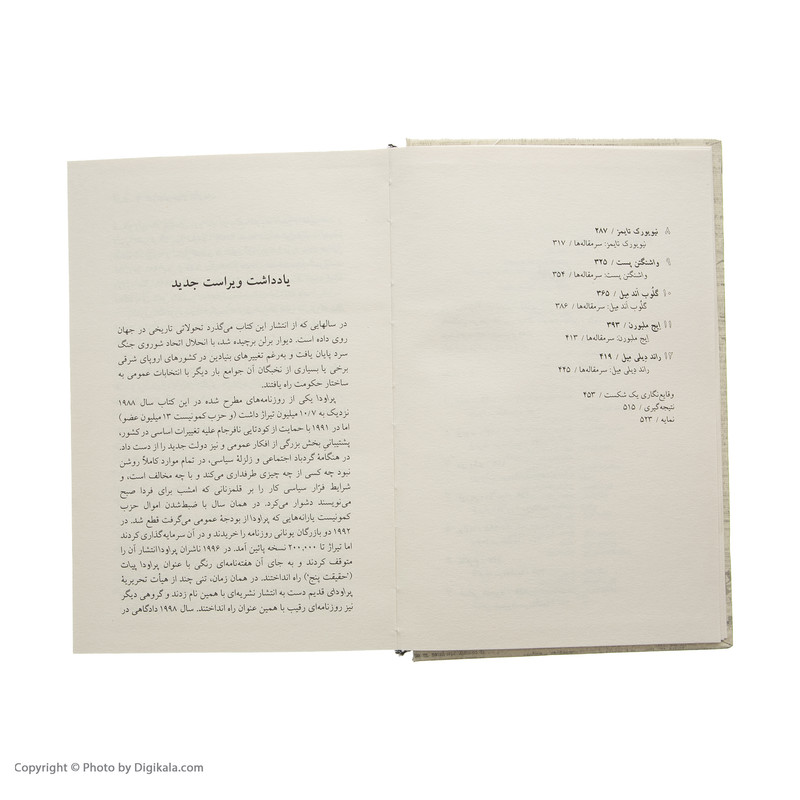 ۸ نیویورک تایمز / ۲۸۷
نیویورک تایمز: سرمقاله‌ها / ۳۱۷
۹ واشنگتن پست / ۳۲۵
واشنگتن پست: سرمقاله‌ها / ۳۵۴
۱۰ گلُوب اَند مِیل / ۳۶۵
گلُوب اَند مِیل: سرمقاله‌ها / ۳۸۶
۱۱ اِیج ملبورن / ۳۹۳
اِیج ملبورن: سرمقاله‌ها / ۴۱۳
۱۲ راند دِیلی مِیل / ۴۱۹
راند دِیلی مِیل: سرمقاله‌ها / ۴۴۵
وقایع‌نگاری یک شکست / ۴۵۳
نتیجه‌گیری / ۵۱۵
نمایه / ۵۲۳
یادداشت ویراست جدید
در سالهایی که از انتشار این کتاب می‌گذرد تحولاتی تاریخی در جهان
روی داده است. دیوار برلن برچیده شد، با انحلال اتحاد شوروی جنگ
سرد پایان یافت و به‌رغم تغییرهای بنیادین در کشورهای اروپای شرقی
برخی یا بسیاری از نخبگان آن جوامع بار دیگر با انتخابات عمومی به
ساختار حکومت راه یافتند.
پراودا یکی از روزنامه‌های مطرح شده در این کتاب سال ۱۹۸۸
نزدیک به ۱۰/۷ میلیون تیراژ داشت (و حزب کمونیست ۱۳ میلیون عضو)
اما در ۱۹۹۱ با حمایت از کودتایی نافرجام علیه تغییرات اساسی در کشور،
پشتیبانی بخش بزرگی از افکار عمومی و نیز دولت جدید را از دست داد.
در هنگامهٔ گردباد اجتماعی و زلزلهٔ سیاسی، در تمام موارد کاملاً روشن
نبود چه کسی از چه چیزی طرفداری می‌کند و با چه مخالف است، و
شرایط فرّار سیاسی کار را بر قلمزنانی که امشب برای فردا صبح
می‌نویسند دشوار می‌کرد. در همان سال با ضبط‌شدن اموال حزب
کمونیست یارانه‌هایی که پراودا از بودجهٔ عمومی می‌گرفت قطع شد. در
۱۹۹۲ دو بازرگان یونانی روزنامه را خریدند و در آن سرمایه‌گذاری کردند
اما تیراژ تا ۲۰۰,۰۰۰ نسخه پائین آمد. در ۱۹۹۶ ناشران پراودا انتشار آن را
متوقف کردند و به جای آن هفته‌نامه‌ای رنگی با عنوان پراودا پیات
('حقیقت پنج') راه انداختند. در همان زمان، تنی چند از هیأت تحریریهٔ
پراودای قدیم دست به انتشار نشریه‌ای با همین نام زدند و گروهی دیگر
نیز روزنامه‌ای رقیب با همین عنوان راه انداختند. سال ۱۹۹۸ دادگاهی در
Copyright © Photo by Digikala.com